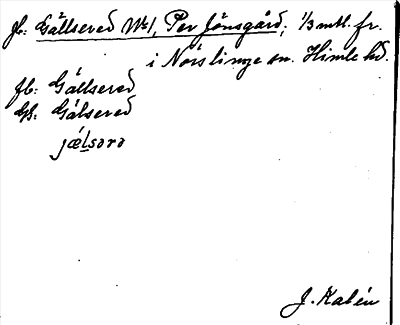 jb: Gällsered No 1, Per Jönsgård, 1/3 mtl. fr.
i Nörslinge sn. Himle hd.
fb: Gällsered
Gb: Gälsered
jælsərə
J. Kalén